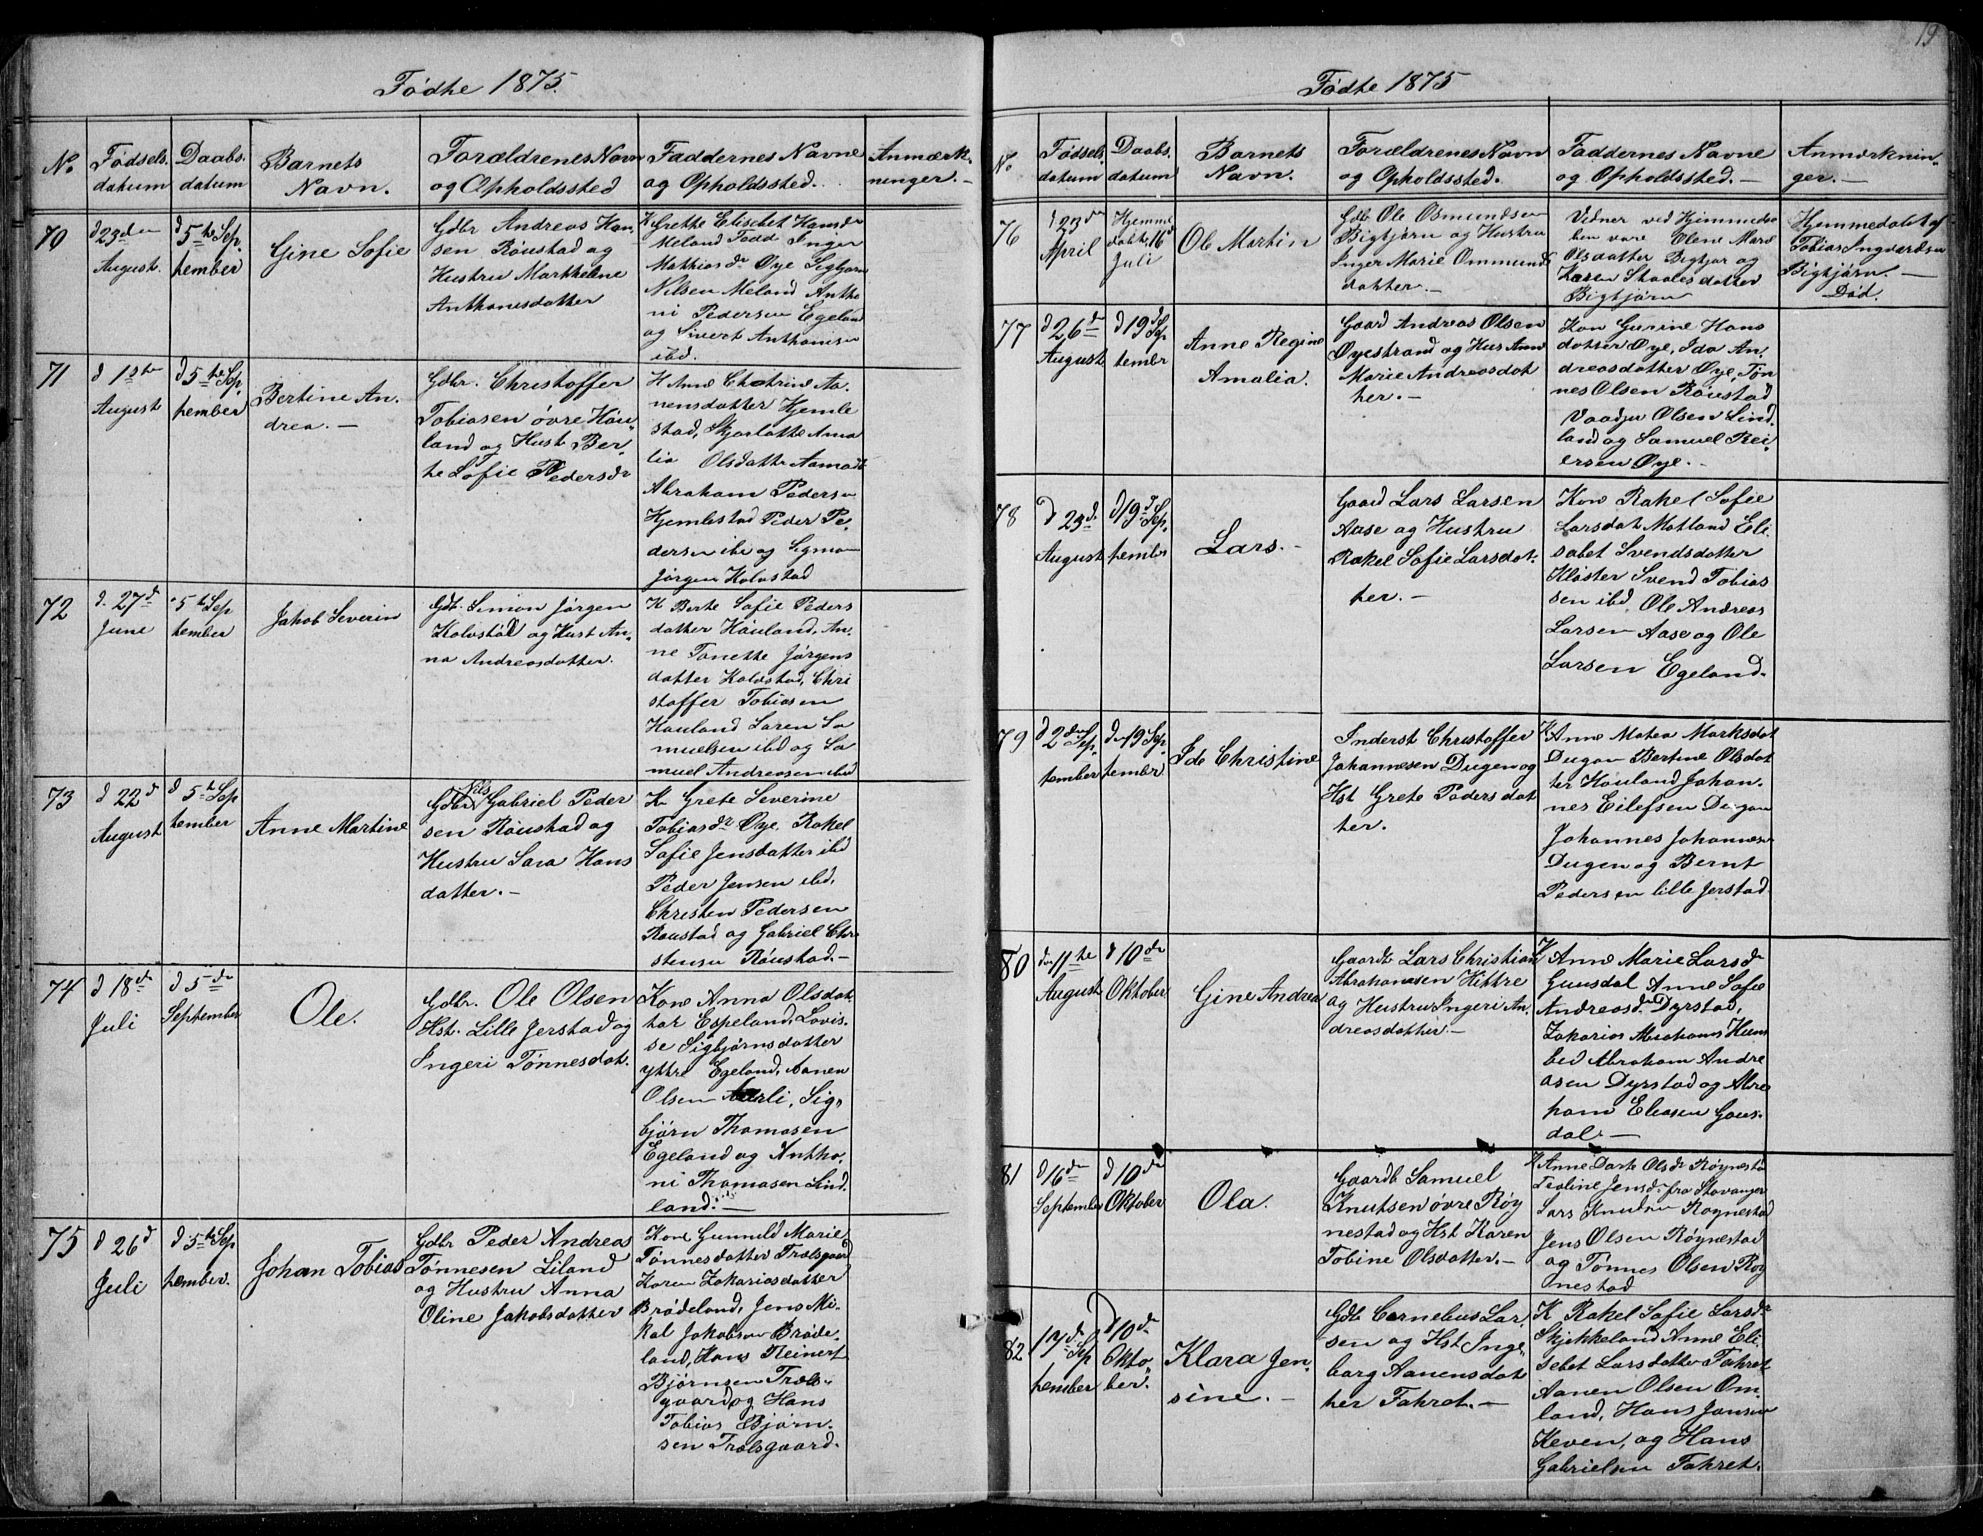 Fødte 1875.
No
Fødsels datum
Daabs datum
Barnets Navn.
Forældrenes Navn og Opholdssted
Faddernes Navne og Opholdssted.
Anmærkninger.
70
d 23de
August
d 5te Sep.
tember
Gine Sofie
Gdbr Andreas Han-
sen Røustad og
Hustru Marthelene
Anthonisdatter
K Grethe Elisebet Hansdr
Meland
Inger
Mathiasdr Øye Sigbjørn
Nilsen Meland Antho
ni Pedersen Egeland
og Sivert Anthonisen
ibd.
71
d 1ste
August
d 5te Sep.
tember
Bertine An.
drea. —
Gdbr. Christoffer
Tobiasen øvre Høu-
land og Hust Ber-
te Sofie Pedersdr
K Anne Chatrine Aa.
nensdatter Hjemle
stad, Skjarlotte Ama
lia Olsdatter
Abraham Pedersen
Hjemlestad Peder Pe-
dersen ibd og Sigmon
Jørgen Kolvstad
72
d. 27d
June
5te Sep
tember
Jakob Severin
Gdb. Simon Jørgen
Kolvstad og Hust An-
na Andreasdatter.
K Berte Sofie Peders
datter Høuland, An-
ne Tonette Jørgens
datter Kolvstad, Chri
stoffer Tobiasen
Høuland Søren Sa
muelsen ibd og Sa
muel Andreasen ibd
73
d 22d
August
d 5te Sep
tember
Anne Martine
Gdbr Nils Gabriel Peder
sen Røustad og
Hustru Sara Hans
datter. —
K Grete Severine
Tobiasdr Øye, Rakel
Sofie Jensdatter ibd
Peder Jensen ibd,
Christen Pedersen
Røustad og Gabriel Chr
stensen Røustad. —
74
d 18de
Juli
d 5de
September
Ole.
Gdbr. Ole Olsen
Hst. Lille Jerstad og
Ingeri Tønnesdat.
Kone Anna Olsdat
ter Espeland, Lovis-
se Sigbjørnsdatter
yttre Egeland, Aanen
Olsen Aarli, Sig-
bjørn Thomasen
Egeland og Antho.
ni Thomasen Lind
land. —
75
d 26d
Juli
d 5te Sep
tember.
Johan Tobias
Gdbr Peder Andreas
Tønnesen Liland
og Hustru Anna
Oline Jakobsdatter
Kone Gunnuld Marie
Tønnesdatter Trælsgaard
Karen Zakariasdatter
Brådeland, Jens Mi-
kal Jakobsen Bråde.
land, Hans Reinert
Bjørnsen Træls-
gaard og Hans
Tobias Bjørn.
sen Trælsgaard.
19
Fødte 1875
No
Fødsels. datum
Daabs. datum
Barnets Navn.
Forældrenes Navn og Opholdssted.
Faddernes Navne og Opholdssted. —
Anmærknin. ger. —
76
d 23de
April
Hjemme
døbt 16d
Juli
Ole Martin
Gdb Ole Osmundsen
Bigtjørn og Hustru
Inger Marie Ommunds
datter. —
Vidner ved Hjemmedaa
ben vare Elene Marie
Olsdatter Bigtjør og
Karen Staalesdatter
Bigtjørn
Hjemmedøbt af
Tobias Ingvardsen
Bigtjørn. —
Død.
77
d 26d
August
d 19d Sep
tembr
Anne Regine
Amalia.
Gaard Andreas Olsen
Øyestrand og Hus Ane
Marie Andreasdat
ter. —
Kon Gurine Hans
datter Øye, Ida An.
dreasdatter Øye, Tøn
nes Olsen Røustad
Olsen Lind
land og Samuel Rei
ersen Øye. —
78
d 23de
August
d 19d Sep
tember
Lars. —
Gaard Lars Larsen
Aase og Hustru
Rakel Sofie Larsdat.
ter. —
Kone Rakel Sofie
Larsdat Motland Eli
sabet Svendsdatter
Kløster Svend Tobias
sen ibd, Ole Andreas
Larsen Aase og Ole
Larsen Egeland.
79
d 2den Sep
tember
den 19 Sep
tember
Ida Christine
Inderst Christoffer
Johannesen Dugen og
Hst Grete Pedersdat
ter.
K Anne Matea Marksdat
Dugan Bertine Olsdat
ter Høuland Johan.
nes Eilefsen Dugan
Johannes Johannesen
Dugen og Bernt
Pedersen lille Jerstad
80
den 11te
August
d 10de
Oktober
Gine Andrea
Gaardb Lars Christian
Abrahamsen Hittre
og Hustru Ingeri An.
dreasdatter. —
K Anne Marie Larsd
Guusdal Anne Sofie
Andreasdr Dyrstad,
Zakarias Abrahams Hum
led Abraham Andre
asen Dyrstad og Abra
ham Eliasen Gous.
dal. —
81
d 16de
September
d 10de
Oktober
Ola.
Gaardb Samuel
Knutsen øvre Røy
nestad og Hst Karen
Tobine Olsdatter. —
K Anne Dorte Olsdr Røynestad
Toline Jensdr fra Stavanger
Lars Knudsen Røynestad
Jens Olsen Røynestad
og Tønnes Olsen Røy
nestad
82
17de Sep
tember
d 10de
Okto-
ber.
Klara Jen.
sine. —
Gdb Cornelius Lar.
sen og Hst Inge-
borg Aanensdat
ter Fahret. —
K Rakel Sofie Larsdr
Skjekkeland Anne Eli
sebet Larsdatter Fahret
Aanen Olsen Om.
land, Hans Jansen
Keven, og Hans
Gabrielsen Fahret.